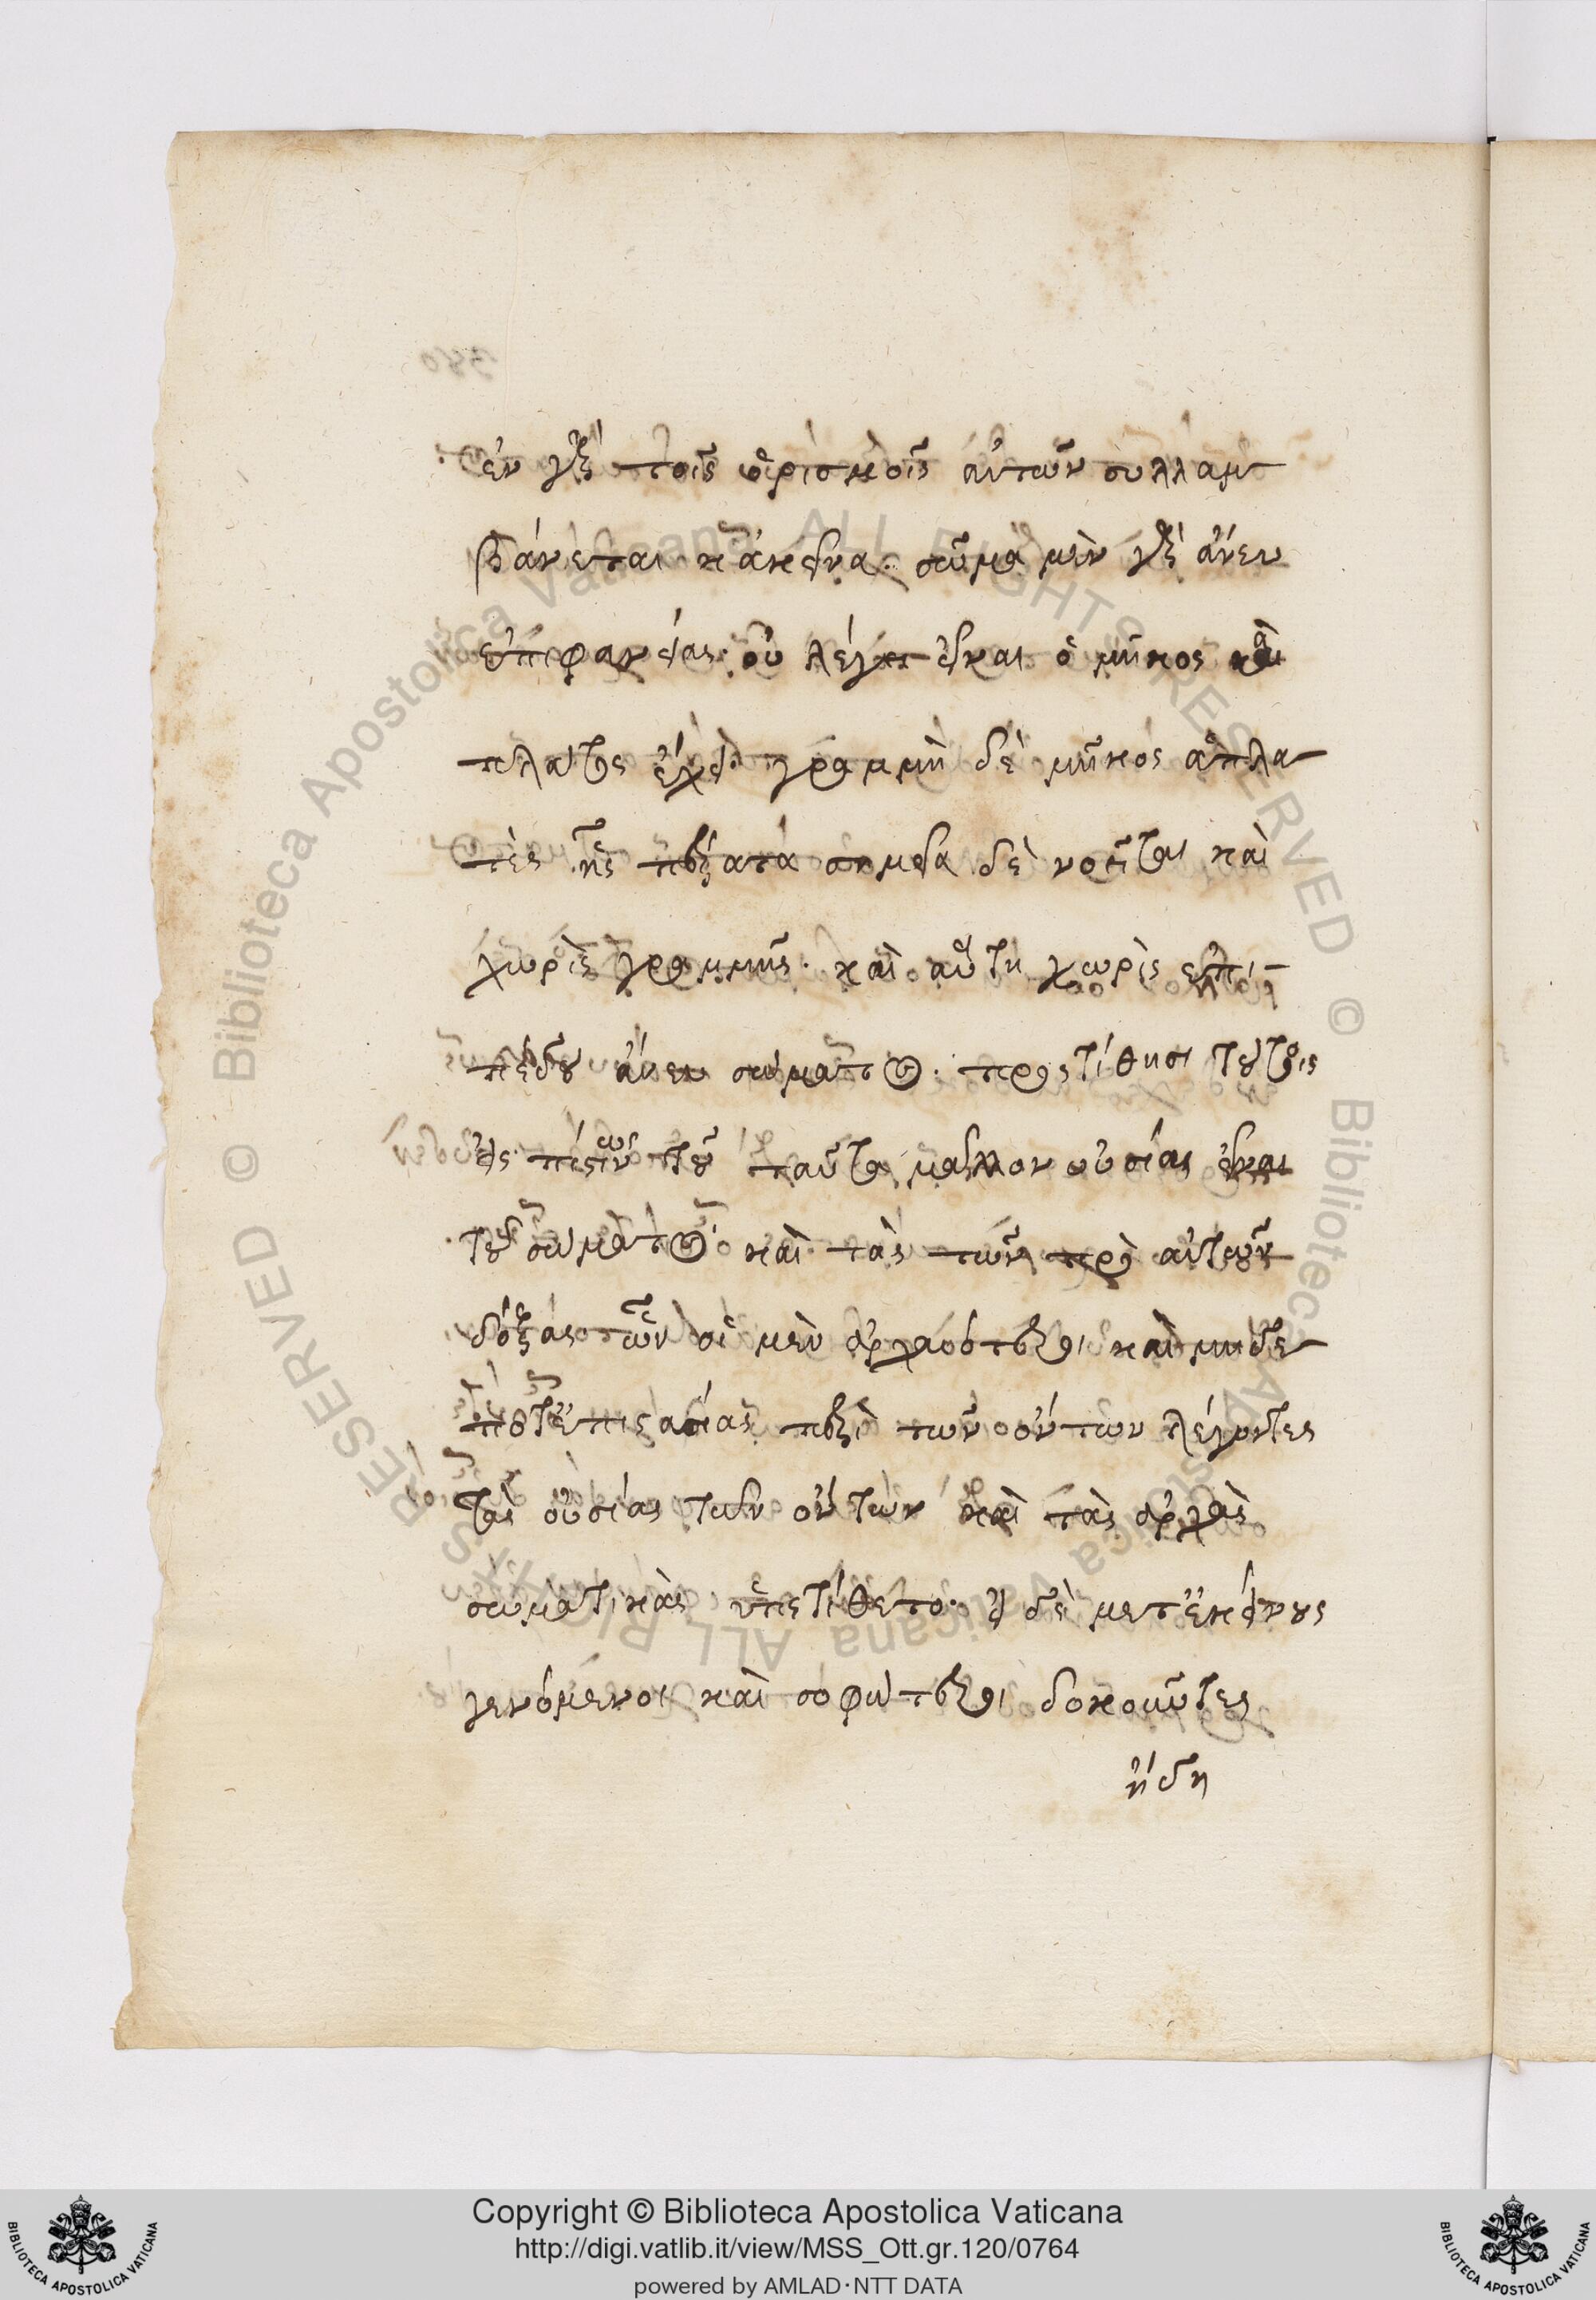 ἐν γὰρ τοῖς ὁρισμοῖς αὐτῶν συλλαμ
βάνεται κἀκεῖνα. σῶμα μὲν γὰρ ἄνευ
ἐπιφανείας οὐ λέγεται εἶναι ὁ μῆκος καὶ
πλάτος ἔχει. γραμμὴ δὲ μῆκος ἀπλα
τὲς ἧς πέρατα σημεῖα δὲ νοεῖται καὶ
χωρὶς γραμμῆς. καὶ αὕτη χωρὶς ἐπι
πέδου ἄνευ σώματος. προστίθησι τούτοις
εἰς πίστιν τοῦ ταῦτα μᾶλλον οὐσίας εἶναι
τοῦ σώματος καὶ τὰς τῶν πρὸ αὐτοῦ
δόξας τῶν οἱ μὲν ἀρχαιότεροι καὶ μηδὲ
ποτ' ἐπιστασίας περὶ τῶν ὄντων λέγοντες
τὰς οὐσίας τῶν ὄντων καὶ τὰς ἀρχὰς
σωματικὰς ὑπετίθετο. οἱ δὲ μετ' ἐκείνους
γενόμενοι καὶ σοφώτεροι δοκοῦντες
ἤδη
Copyright © Biblioteca Apostolica Vaticana
http://digi.vatlib.it/view/MSS_Ott.gr.120/0764
powered by AMLAD·NTT DATA
BIBLIOTECA APOSTOLICA VATICANA
BIBLIOTECA APOSTOLICA VATICANA
© Biblioteca Apostolica Vaticana ALL RIGHTS RESERVED
© Biblioteca Apostolica Vaticana ALL RIGHTS RESERVED